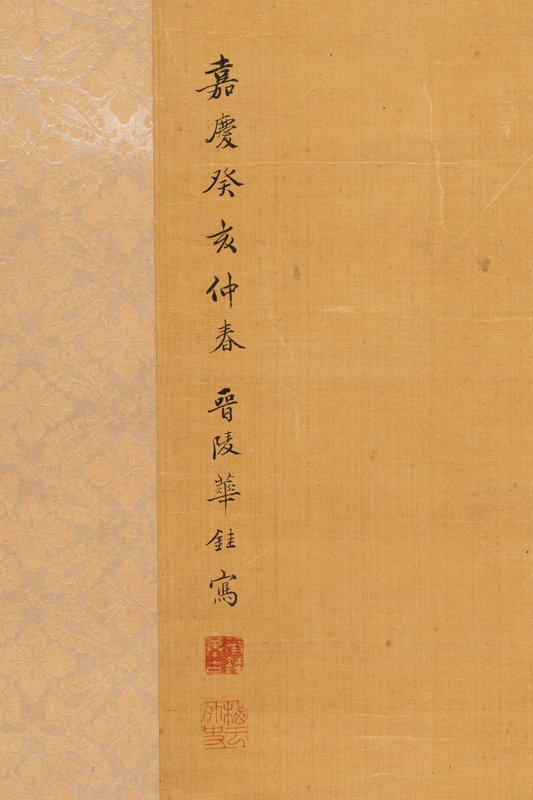 嘉慶癸亥仲春 晉陵華銈寫